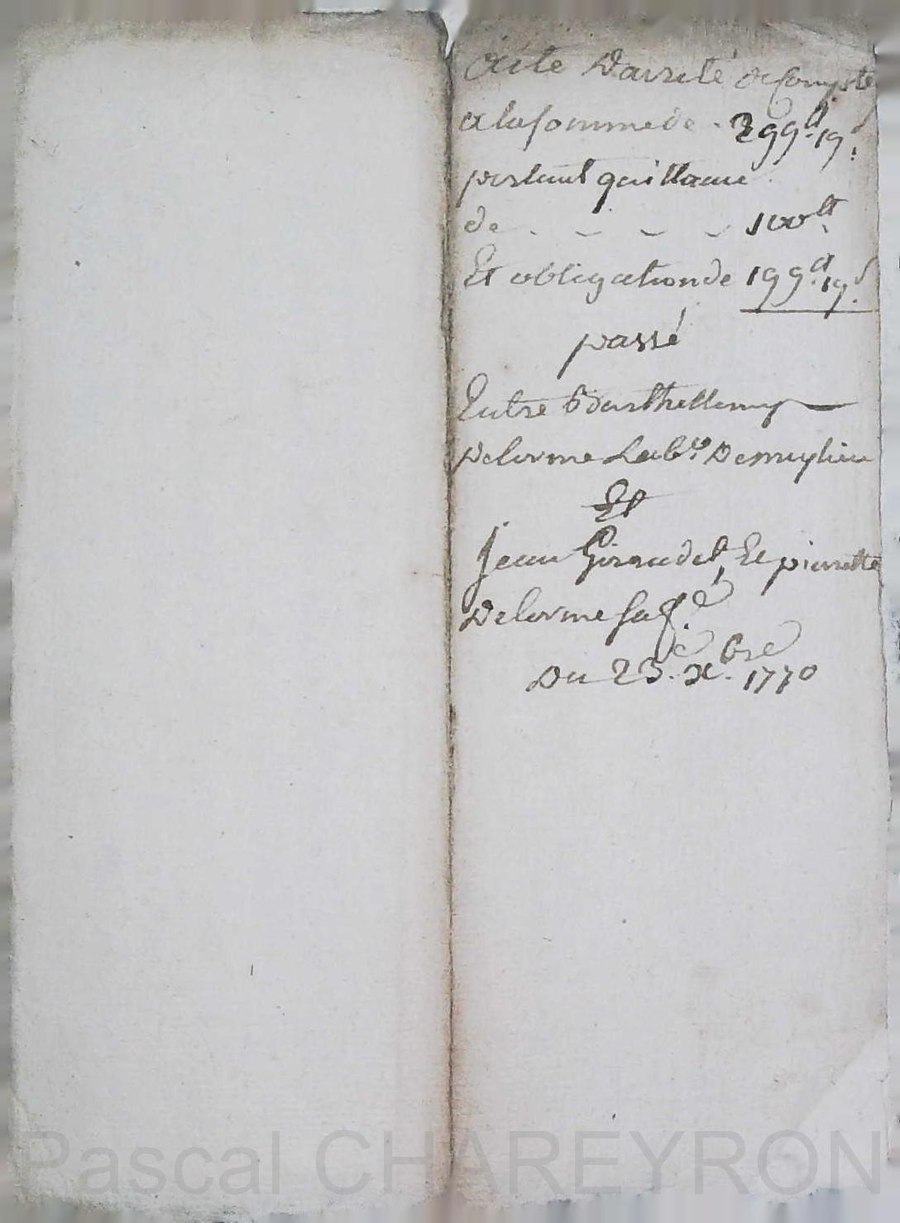 Acte Darreté de Compte
a la somme de . 299lt.19s.
portant quittance
de - - - - 100lt.
Et obligation de 199lt.19s.
passé
Entre Barthellemy
Delorme Labr. De
Et
Jean Giraudet, Et pierrette
Delorme sa fe.
Du 23e. xbre. 1770
Pascal CHAREYRON